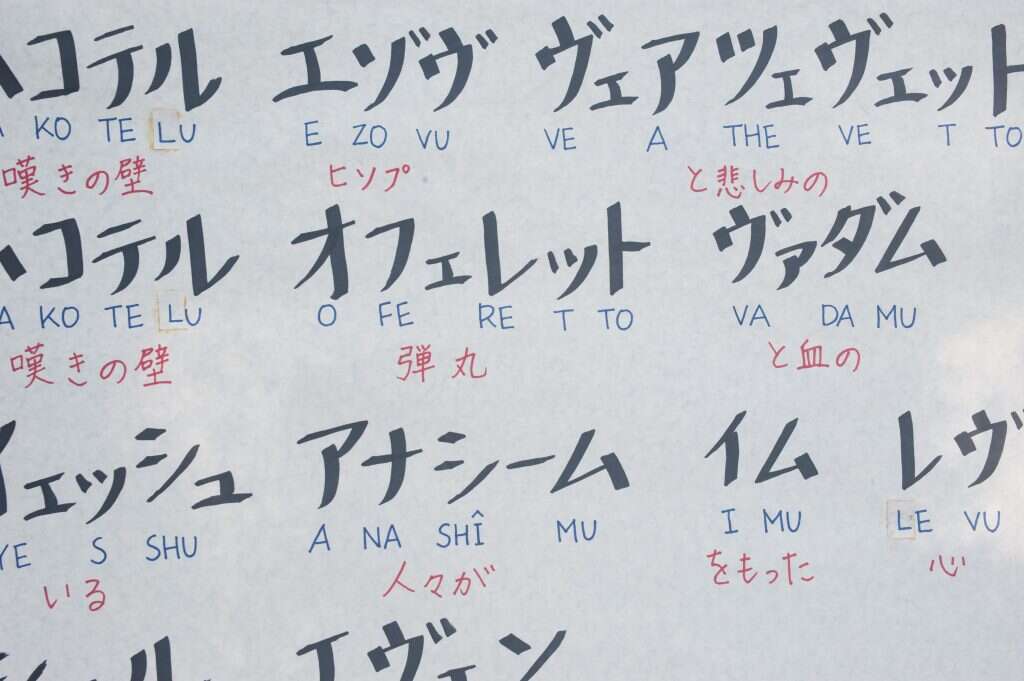 コテル エゾヴ ヴェアツェヴェット
KO TE LU E ZO VU VE A THE VE T TO
嘆きの壁 ヒソプ と悲しみの
ハコテル オフェレット ヴァダム
A KO TE LU O FE RE T TO VA DA MU
嘆きの壁 弾丸 と血の
イェッシュ アナシーム イム レヴ
YE S SHU A NA SHÎ MU I MU LE VU
いる 人々が をもった 心
エヴェン